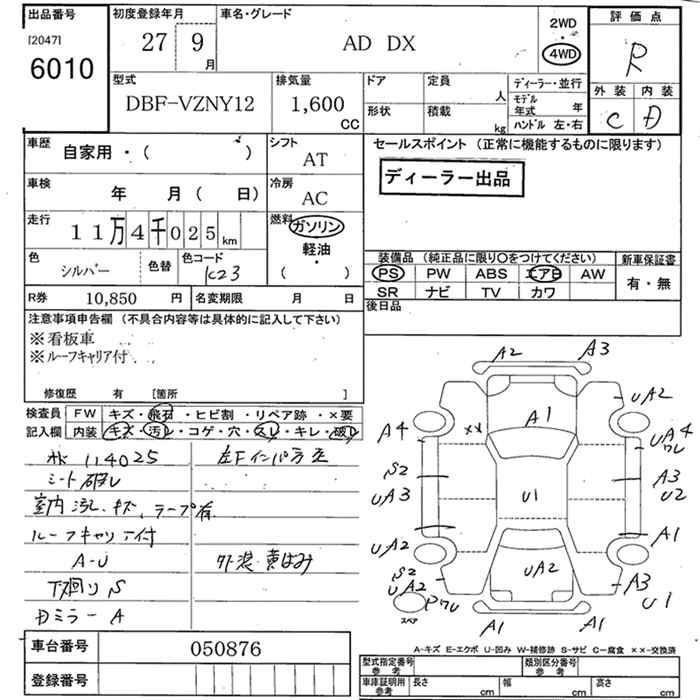 出品番号
[2047]
6010
初度登録年月
27 9月
車名・グレード
AD DX
2WD
4WD
評価点
R
外装 内装
C D
型式
DBF-VZNY12
排気量
1,600 CC
ドア
形状
定員 人
積載 kg
ディーラー・並行
モデル年式 年
ハンドル 左・右
車歴 自家用・( )
シフト AT
車検 年 月 ( 日)
冷房 AC
走行 11万4千025km
燃料 ガソリン
軽油
( ・ )
色 シルバー 色替 色コード K23
R券 10,850 円 名変期限 月 日
セールスポイント (正常に機能するものに限ります)
ディーラー出品
装備品 (純正品に限り○をつけてください)
新車保証書
PS PW ABS エアB AW
有・無
SR ナビ TV カワ
後日品
注意事項申告欄 (不具合内容等は具体的に記入して下さい)
※看板車
※ルーフキャリア付
修復歴 有 [箇所 ]
検査員 FW キズ・飛石・ヒビ割・リペア跡・×要
記入欄 内装 キズ・汚レ・コゲ・穴・スレ・キレ・破レ
114025
シート破レ
室内汚レ、キズ、テープ有
ルーフキャリア付
A-U
下廻りS
Dミラー A
左Fインパ歪
外装 黄ばみ
A2 A3
A1
UA2
A4
××
UA4
ワレ
S2
UA3
U1
A3
U2
A1
UA2
UA2
S2
UA2
A3
U1
ワレ
スペア
A1 A1
A-キズ E-エクボ U-凹み W-補修跡 S-サビ C-腐食 ××-交換済
車台番号 050876
登録番号
型式指定番号 参考
類別区分番号 参考
車庫証明用 参考 長さ cm 幅 cm 高さ cm